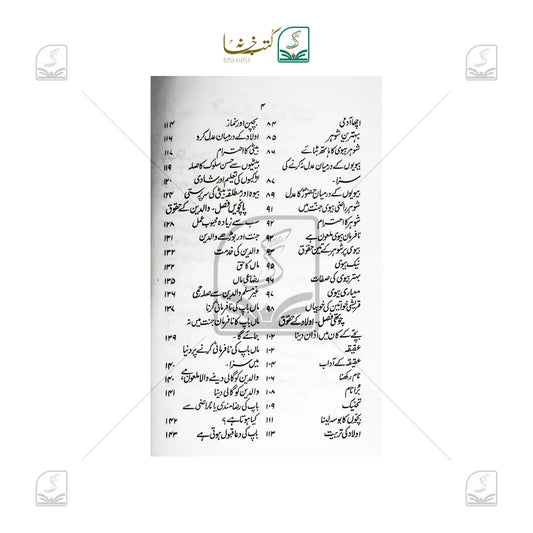 کتب خانہ
۴
اچھا آدمی ۸۴
بہترین شوہر ۸۵
شوہر بیوی کا ہاتھ بٹائے ۸۶
بیویوں کے درمیان عدل نہ کرنے کی
سزا۔ ۸۷
بیویوں کے درمیان حضورؐ کا عدل ۸۹
شوہر راضی بیوی جنت میں ۹۱
شوہر کا احترام ۹۲
نافرمان بیوی ملعون ہے ۹۲
بیوی پر شوہر کے تین حقوق ۹۳
نیک بیوی ۹۵
بہتر بیوی کی صفات ۹۶
معیاری بیوی ۹۷
قریشی خواتین کی خوبیاں ۹۸
چوتھی فصل۔ اولاد کے حقوق
بچے کے کان میں اذان دینا ۱۰۲
عقیقہ ۱۰۲
عقیقہ کے آداب ۱۰۴
نام رکھنا ۱۰۶
برا نام ۱۰۸
تحنیک ۱۰۹
بچوں کا بوسہ لینا ۱۱۱
اولاد کی تربیت ۱۱۳
بچپن اور نماز ۱۱۴
اولاد کے درمیان عدل کرو ۱۱۶
بیٹی کا احترام ۱۱۷
بیٹیوں سے حسن سلوک کا صلہ ۱۱۹
لڑکیوں کی تعلیم اور شادی ۱۲۰
بیوہ اور مطلقہ بیٹی کی سرپرستی ۱۲۴
پانچویں فصل۔ والدین کے حقوق
سب سے زیادہ محبوب عمل ۱۲۸
جنت اور بوڑھے والدین ۱۳۱
والدین کی خدمت ۱۳۲
ماں کا حق ۱۳۲
رضاعی ماں ۱۳۵
غیر مسلم والدین سے صلہ رحمی ۱۳۶
ماں باپ کی نافرمانی کرنا ۱۳۷
ماں باپ کا نافرمان جنت میں نہ
جائے گا۔ ۱۳۹
ماں باپ کی نافرمانی کرنے پر دنیا
میں سزا۔ ۱۴۰
والدین کو گالی دینے والا ملعون ہے، ۱۴۰
والدین کو گالی دینا ۱۴۱
باپ کی رضا مندی یا ناراضی سے
کیا ہوتا ہے؟ ۱۴۲
باپ کی دعا قبول ہوتی ہے ۱۴۳